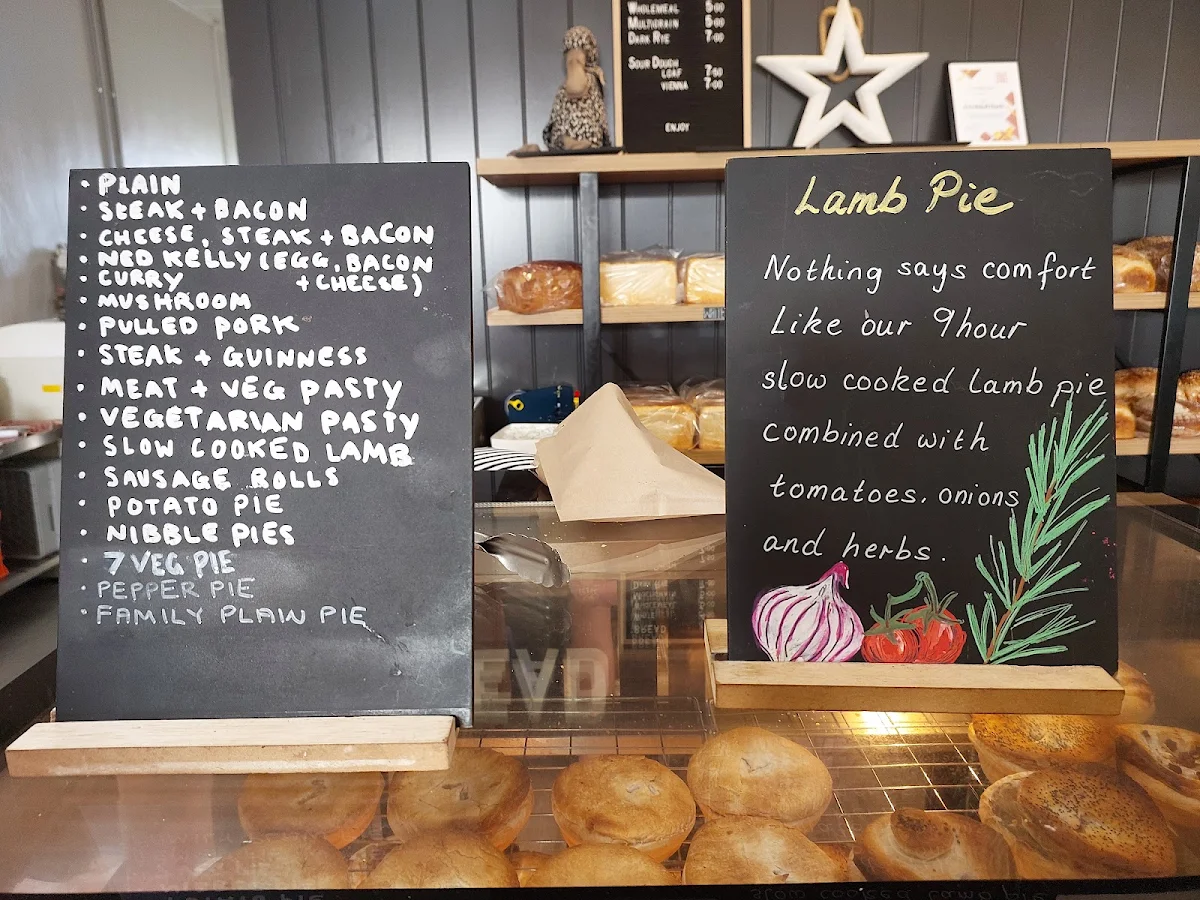 • PLAIN
• STEAK + BACON
• CHEESE, STEAK + BACON
• NED KELLY (EGG, BACON
+ CHEESE)
• CURRY
• MUSHROOM
• PULLED PORK
• STEAK + GUINNESS
• MEAT + VEG PASTY
• VEGETARIAN PASTY
• SLOW COOKED LAMB
• SAUSAGE ROLLS
• POTATO PIE
• NIBBLE PIES
• 7 VEG PIE
• PEPPER PIE
• FAMILY PLAIN PIE
WHOLEMEAL 5.00
MULTIGRAIN 5.00
DARK RYE 7.00
SOUR DOUGH
LOAF 7.50
VIENNA 7.00
ENJOY
Lamb Pie
Nothing says comfort
Like our 9hour
slow cooked Lamb pie
combined with
tomatoes, onions
and herbs.